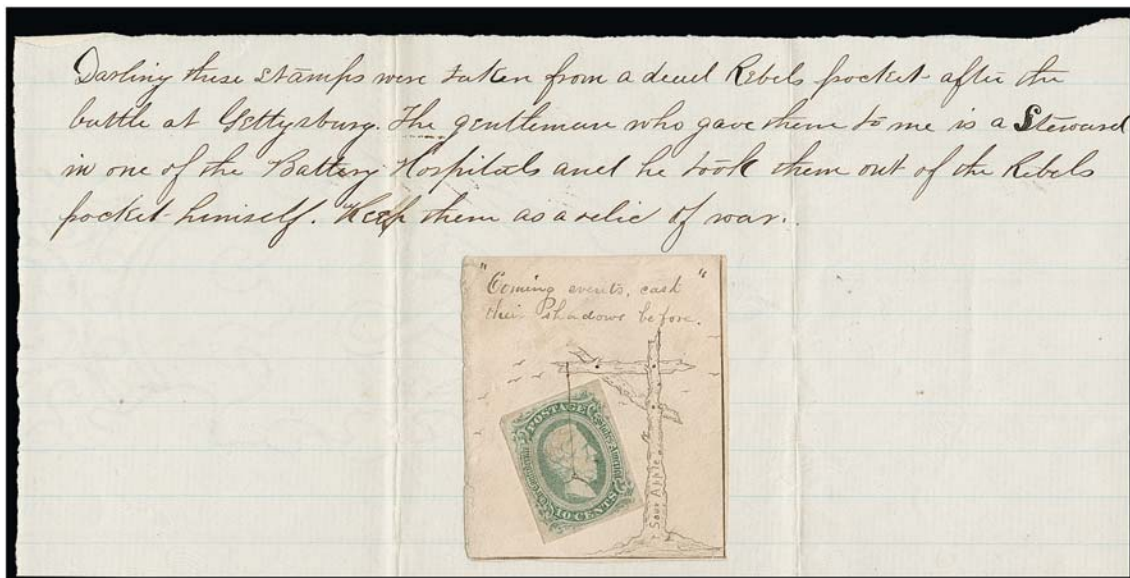 Darling these stamps were taken from a dead Rebels pocket after the
battle at Gettysburg. The gentleman who gave them to me is a Steward
in one of the Battery Hospitals and he took them out of the Rebels
pocket himself. Keep them as a relic of war.
"Coming events, cast "
their shadows before.
POSTAGE
Confederate States America
10 CENTS
Sour Apple